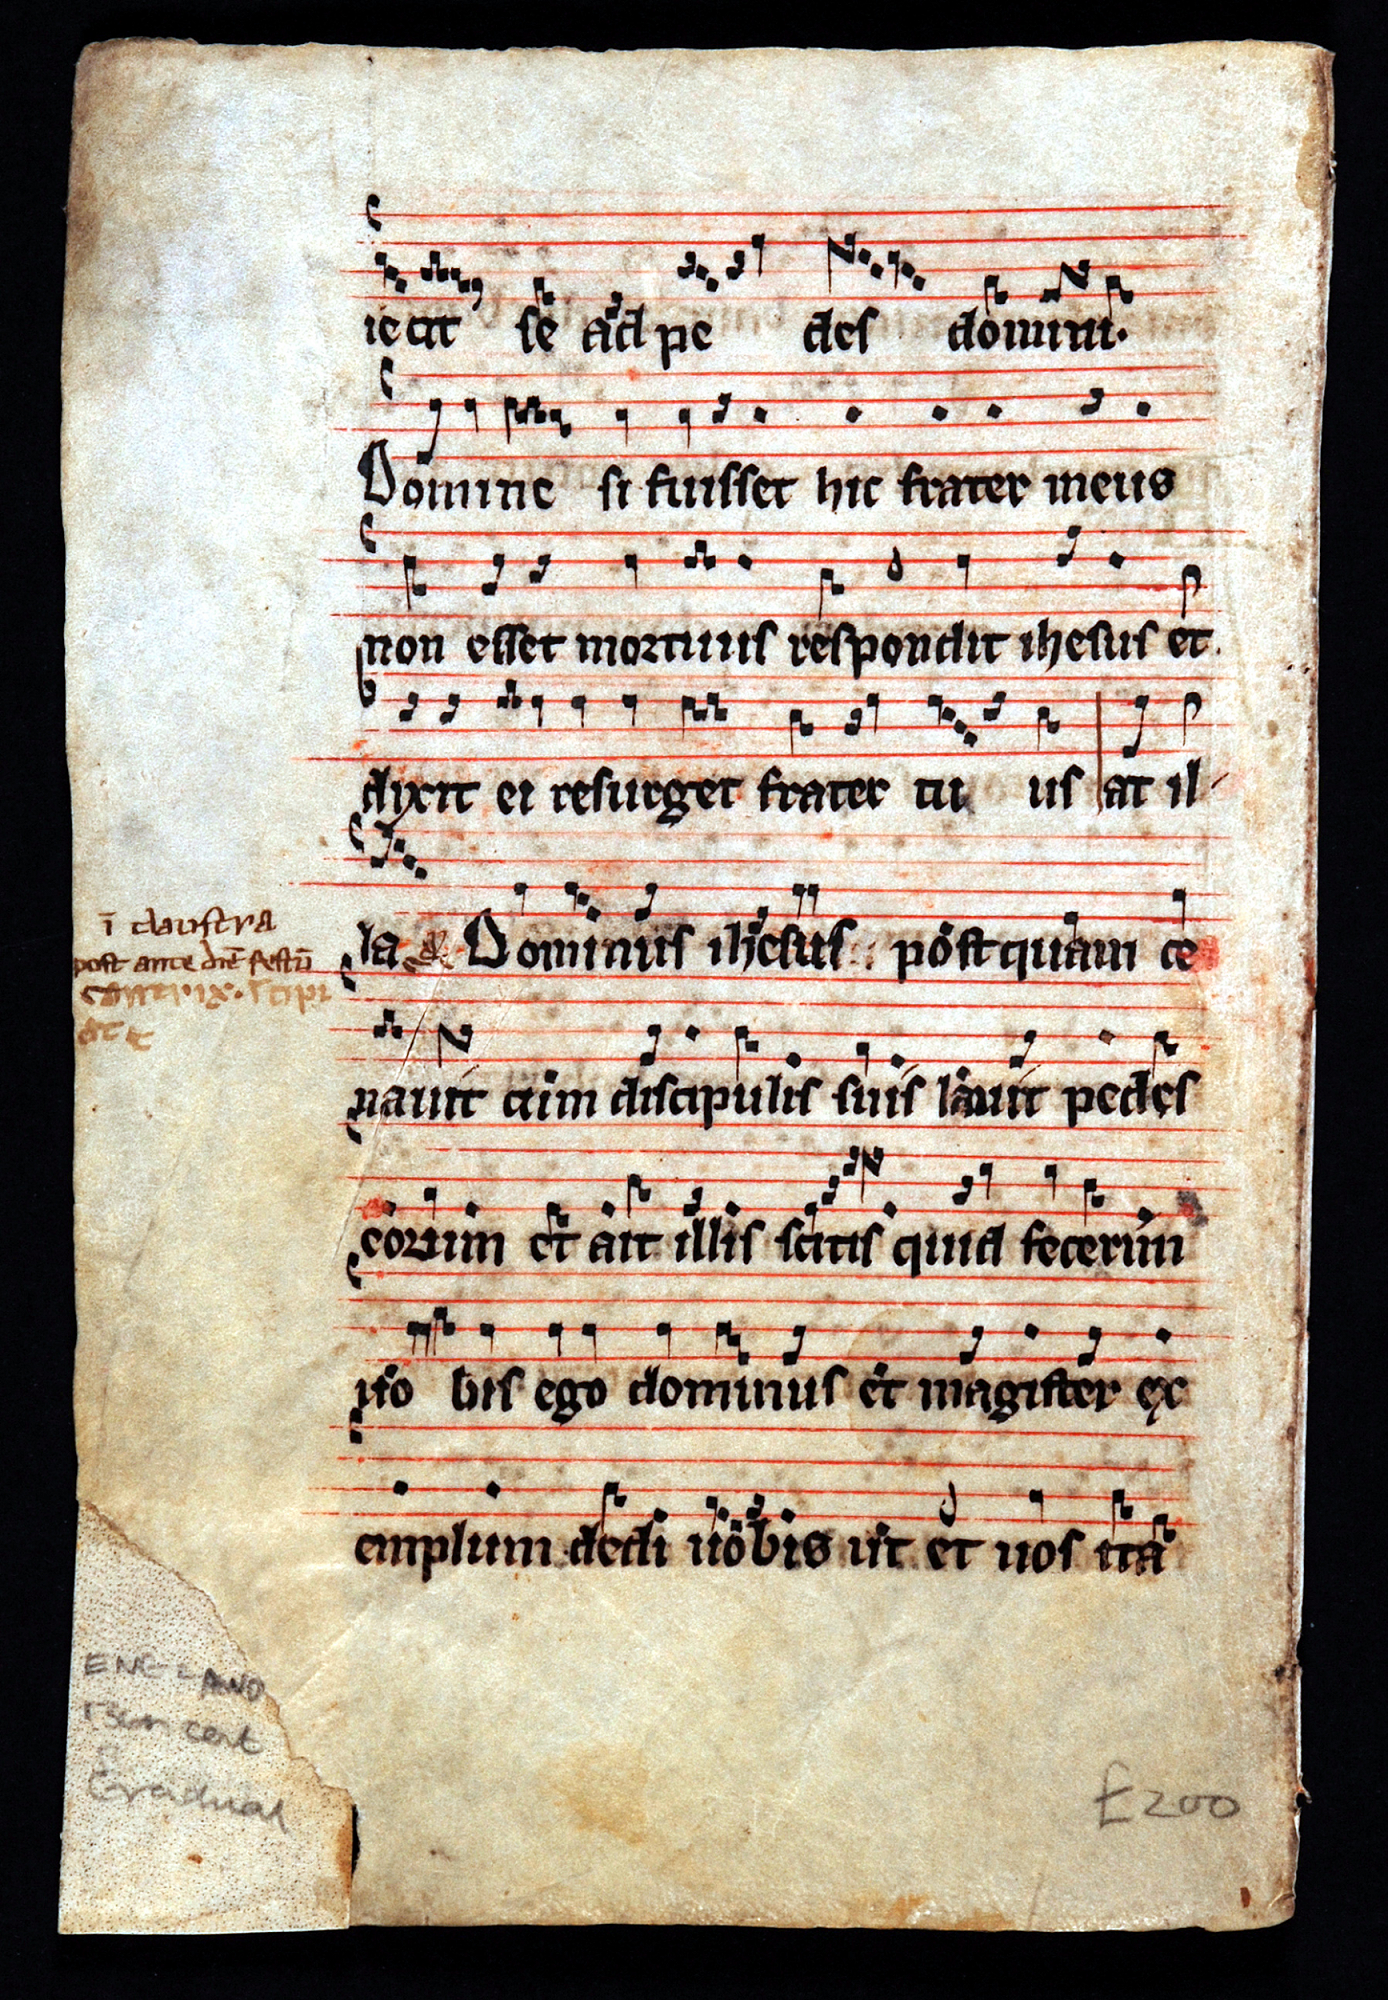 iecit se ad pe des domini.
Domine si fuisset hic frater meus
non esset mortuus respondit ihesus et
dixit ei resurget frater tu us at il
la Dominus ihesus postquam ce
i claustra
post ante die festu
nauit cum discipulis suis lauit pedes
eorum et ait illis scitis quid fecerim
uo bis ego dominus et magister ex
emplum dedi uobis ut et uos ita
ENGLAND
13th cent
Gradual
£200